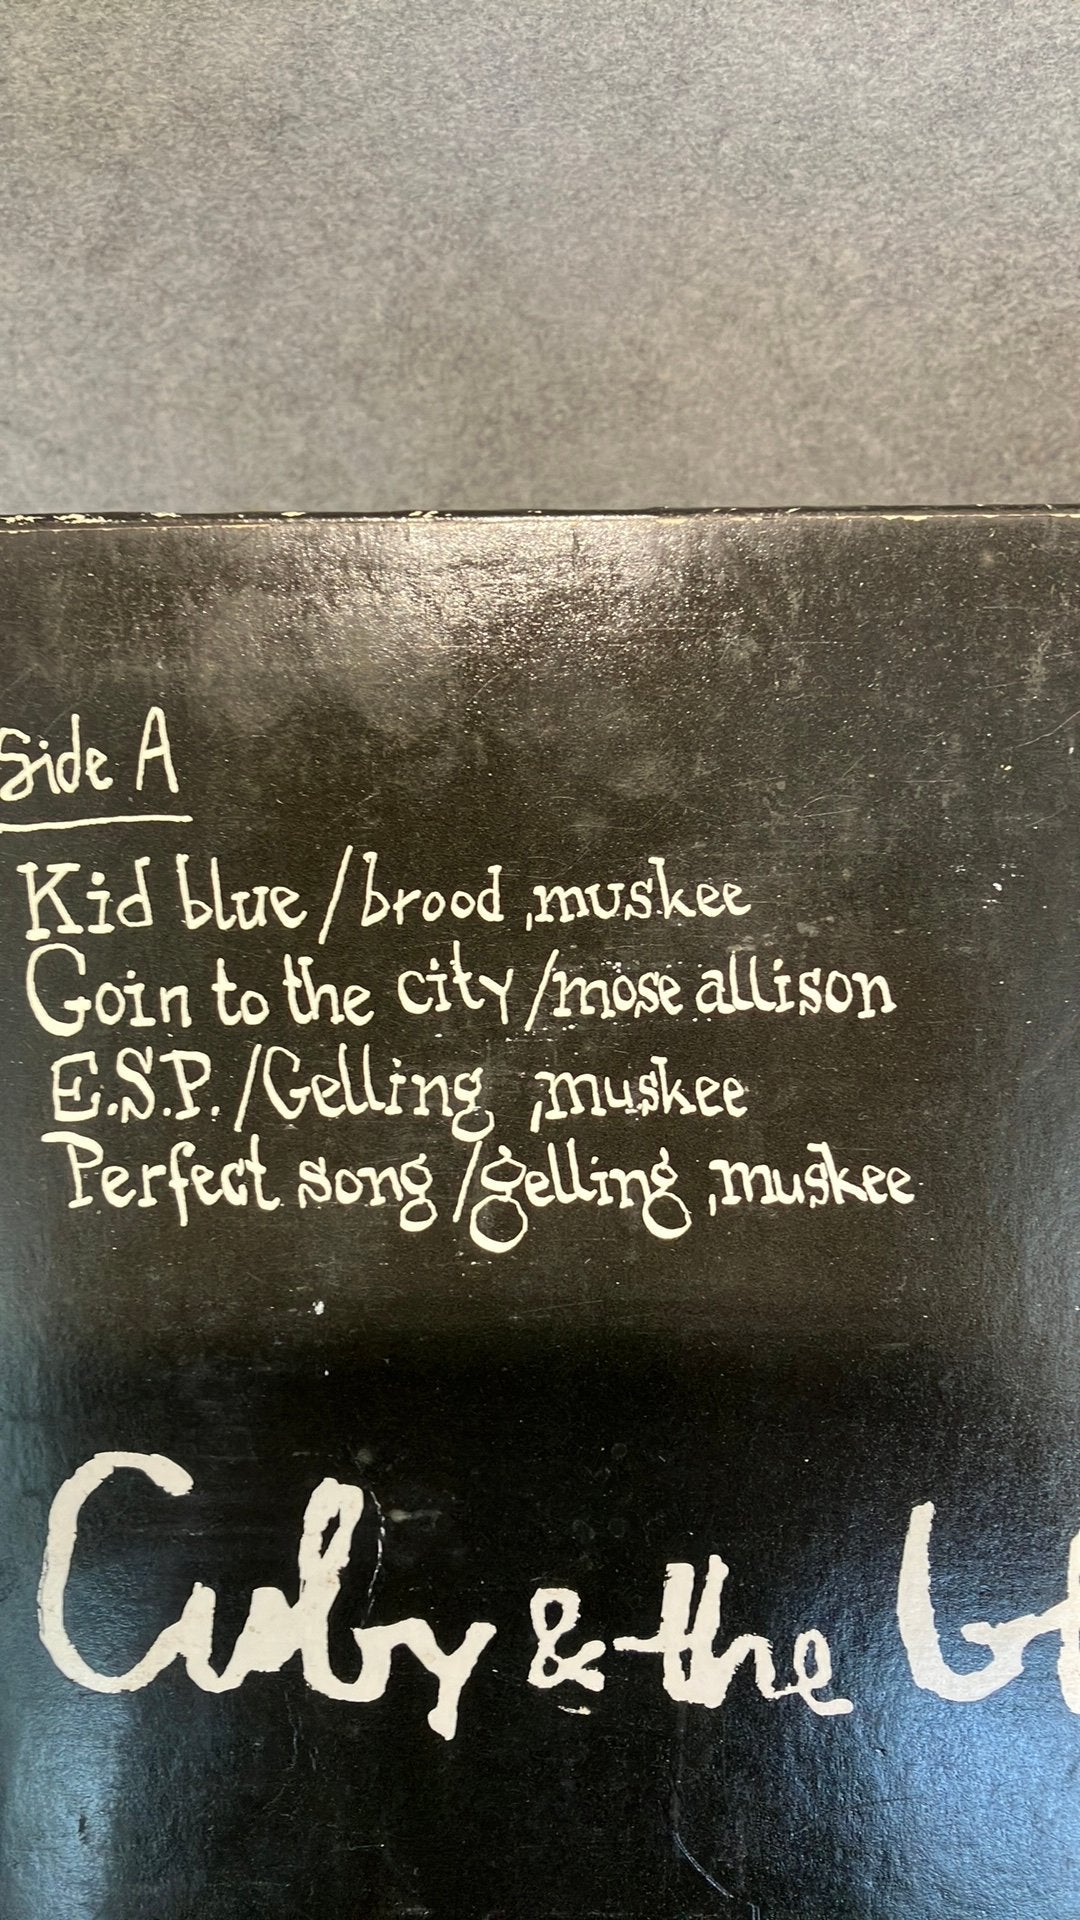 Side A
Kid blue / brood , muskee
Goin to the city / mose allison
E.S.P. / Gelling , muskee
Perfect song / gelling , muskee
Cuby & the